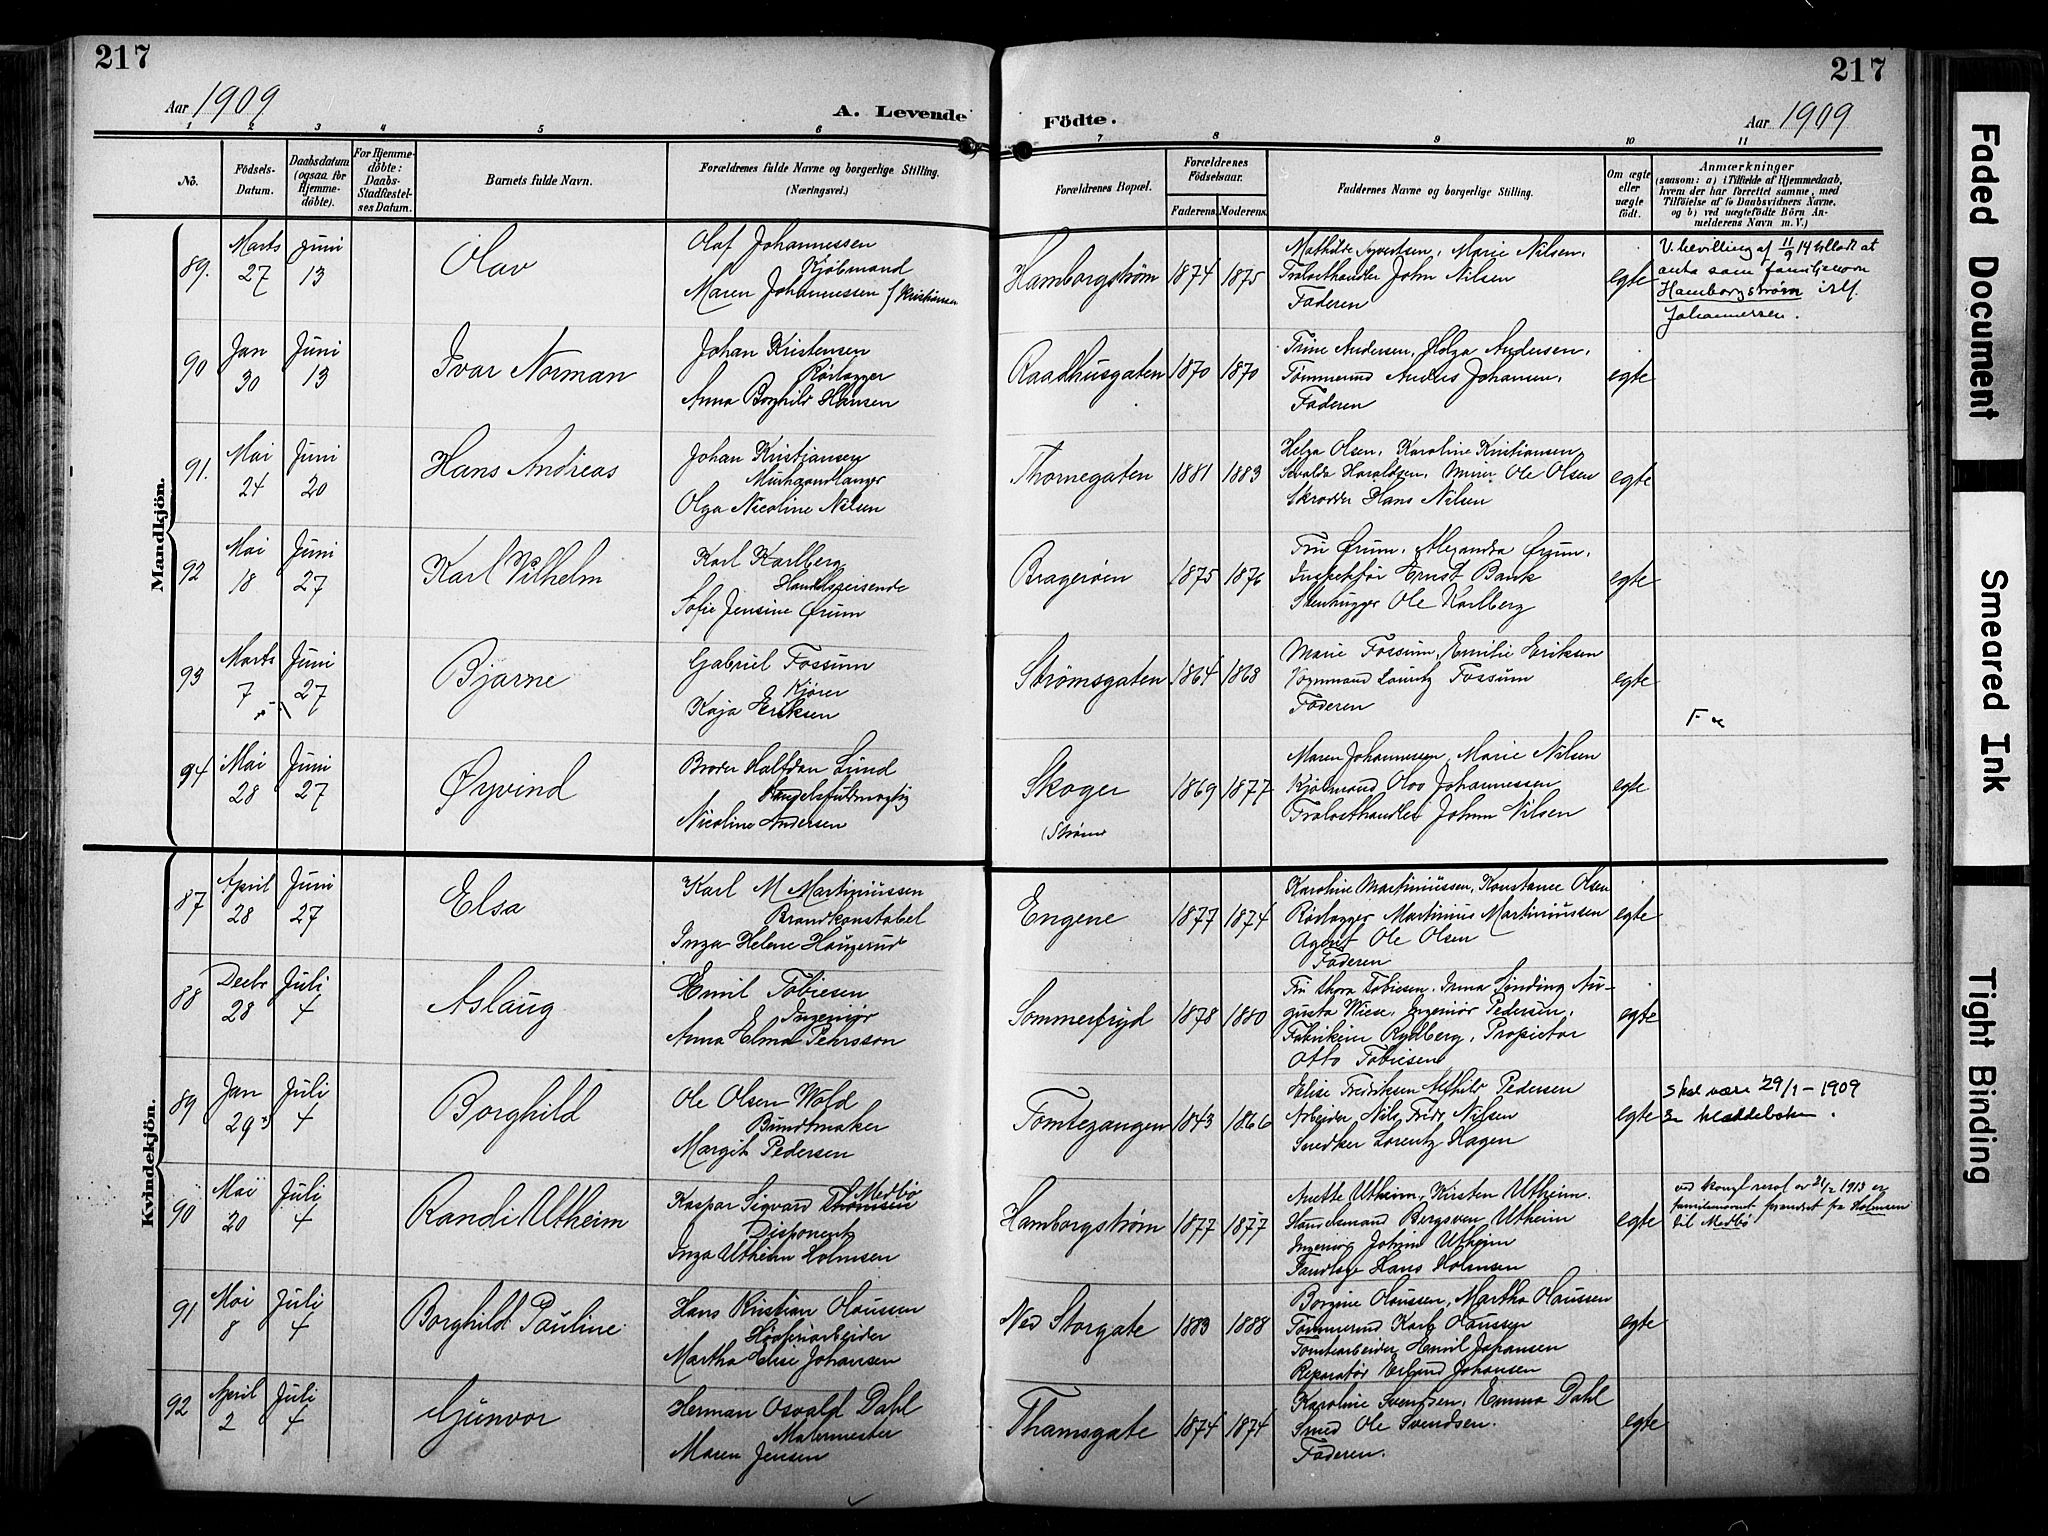 217
217
Aar 1909
A. Levende
Födte.
Aar 1909
1 2 3 4 5 6 7 8 9 10 11
Nô.
Födsels-
Datum.
Daabsdatum
(ogsaa for
Hjemme-
döbte).
For Hjemme-
döbte:
Daabs-
Stadfæstel-
ses Datum.
Barnets fulde Navn.
Forældrenes fulde Navne og borgerlige Stilling.
(Næringsvei.)
Forældrenes Bopæl.
Forældrenes
Födselsaar.
Faderens.
Moderens.
Faddernes Navne og borgerlige Stilling.
Om ægte
eller
uægte
födt.
Anmærkninger
(saasom: a) i Tilfælde af Hjemmedaab,
hvem der har forrettet samme, med
Tilföielse af to Daabsvidners Navne,
og b) ved uægtefödte Börn An-
melderens Navn m. V.)
Mandkjön.
89. Marts 27 Juni 13
Olav
Olaf Johannessen
Kjøbmand
Maren Johannessen f. Kristiansen
Hamborgstrøm 1874 1875
Mathilde Syvertsen, Marie Nilsen,
Trælasthandler John Nilsen
Faderen
egte
V. bevilling af 11/9 14 tilladt at
anta som familienavn
Hamborgstrøm istf.
Johannessen.
90 Jan 30 Juni 13
Ivar Norman
Johan Kristensen
Rørlægger
Anna Borghild Hansen
Raadhusgaten 1870 1870
Trine Andersen, Helga Andersen,
Tømmermd Anders Johansen,
Faderen
egte
91. Mai 24 Juni 20
Hans Andreas
Johan Kristiansen
Murhaandlanger
Olga Nicoline Nilsen
Thornegaten 1881 1883
Helga Olsen, Karoline Kristiansen,
Haraldsen, Murer Ole Olsen
Skrædder Hans Nilsen
egte
92 Mai 18 Juni 27
Karl Vilhelm
Karl Karlberg
Handelsreisende
Sofie Jensine Ørum
Bragerøen 1875 1876
Fru Ørum, Alexandra Ørum,
Inspektør Ernst Bank
Stenhugger Ole Karlberg
egte
93 Marts 7 Juni 27
Bjarne
Gabriel Fossum
Kjører
Kaja Eriksen
Strømsgaten 1864 1868
Marie Fossum, Emilie Eriksen
Vognmand Lauritz Fossum
Faderen
egte
94 Mai 28 Juni 27
Øyvind
Broder Halfdan Lund
Handelsfuldmægtig
Nicoline Andersen
Skoger
(Strøm
1869 1877
Maren Johannessen, Marie Nilsen
Kjøbmand Olav Johannessen
Trælasthandler Johan Nilsen
egte
Kvindekjön.
87 April 28 Juni 27
Elsa
Karl M Martiniussen
Brandkonstabel
Inga Helene Haugerud
Engene 1877 1874
Karoline Martiniussen, Konstance Olsen
Rørlægger Martinius Martiniussen
Agent Ole Olsen
Faderen
egte
88 Decbr 28 Juli 4
Aslaug
Emil Tobiesen
Ingeniør
Anna Elma Pehrsson
Sommerfryd 1878 1880
Fru Thora Tobiesen, Anna Sinding Au-
gusta Wiese, Ingeniør Pedersen,
Fabrikeier Rydberg, Propietær
Otto Tobiesen
egte
89 Jan 29 Juli 4
Borghild
Ole Olsen Wold
Bundtmaker
Margit Pedersen
Tomtegangen 1843 1866
Elise Fredriksen Mathild Pedersen
Arbeider Nils Fredr Nilsen
Snedker Lorentz Hagen
egte
skal være 29/1 – 1909
se kladdeboken.
90 Mai 20 Juli 4
Randi Utheim
Medbö
Kaspar Sigvard Thomsen
Disponent
Inga Utheim Holmsen
Hamborgstrøm 1877 1877
Anette Utheim, Kirsten Utheim.
Handelsmand Bergsven Utheim
Ingeniør Johan Utheim
Tandlæge Hans Holmsen
egte
ved kongl. resol. av 21/2 1913 er
familienavnet forandret fra Holmsen
til Medbö
91 Mai 8 Juli 4
Borghild Pauline
Hans Kristian Olaussen
Høvleriarbeider
Martha Elise Johansen
Ned Storgate 1883 1888
Borgine Olaussen, Martha Olaussen
Tømmermd Karl Olaussen
Tomtearbeider Emil Johansen
Reparatør Erland Johansen
egte
92 April 2 Juli 4
Gunvor
Herman Osvald Dahl
Malermester
Maren Jensen
Thamsgate 1874 1874
Karoline Svendsen, Emma Dahl
Smed Ole Svendsen.
Faderen.
egte
Faded Document
Smeared Ink
Tight Binding